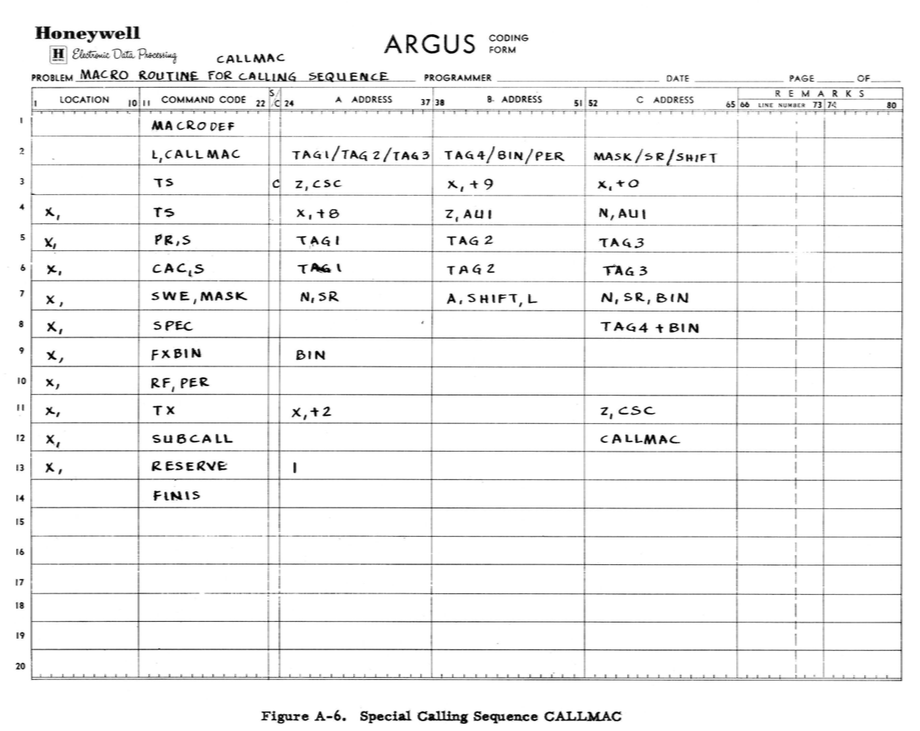 Honeywell
H Electronic Data Processing
ARGUS CODING FORM
CALLMAC
PROBLEM MACRO ROUTINE FOR CALLING SEQUENCE PROGRAMMER DATE PAGE OF
1 LOCATION 10 11 COMMAND CODE 22 S/C 24 A ADDRESS 37 38 B ADDRESS 51 52 C ADDRESS 65 66 REMARKS LINE NUMBER 73 74 80
1 MACRODEF
2 L,CALLMAC TAG1/TAG2/TAG3 TAG4/BIN/PER MASK/SR/SHIFT
3 TS C Z,CSC X,+9 X,+0
4 X, TS X,+8 Z,AU1 N,AU1
5 X, PR,S TAG1 TAG2 TAG3
6 X, CAC,S TAG1 TAG2 TAG3
7 X, SWE,MASK N,SR A,SHIFT,L N,SR,BIN
8 X, SPEC TAG4+BIN
9 X, FXBIN BIN
10 X, RF,PER
11 X, TX X,+2 Z,CSC
12 X, SUBCALL CALLMAC
13 X, RESERVE 1
14 FINIS
15
16
17
18
19
20
Figure A-6. Special Calling Sequence CALLMAC